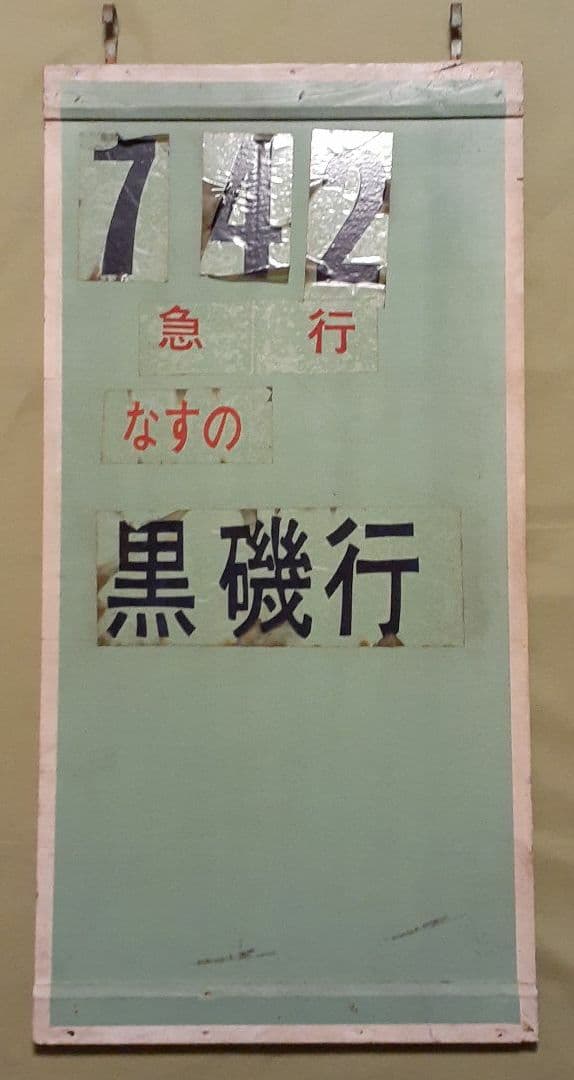 742
急行
なすの
黒磯行